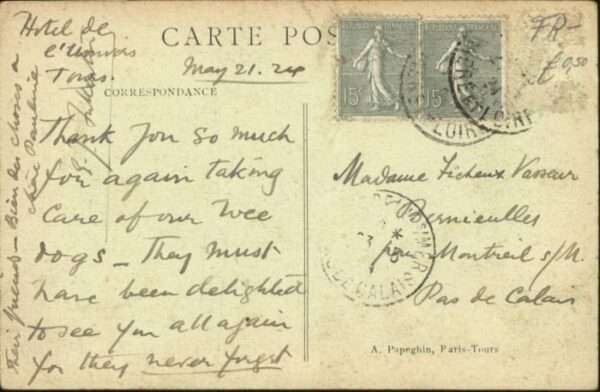 Hotel de
l'Univers
Tours.
CARTE POS
May 21. 24
CORRESPONDANCE
Thank you so much
for again taking
care of our wee
dogs - They must
have been delighted
to see you all again
for they never forget
their friends - Bien des choses a
Mère Pauline
15
15
LOIRE
FR-
0,50
Madame Ficheux Vasseur
Bernieulles
par Montreuil s/M.
Pas de Calais
DE CALAIS
A. Papeghin, Paris-Tours